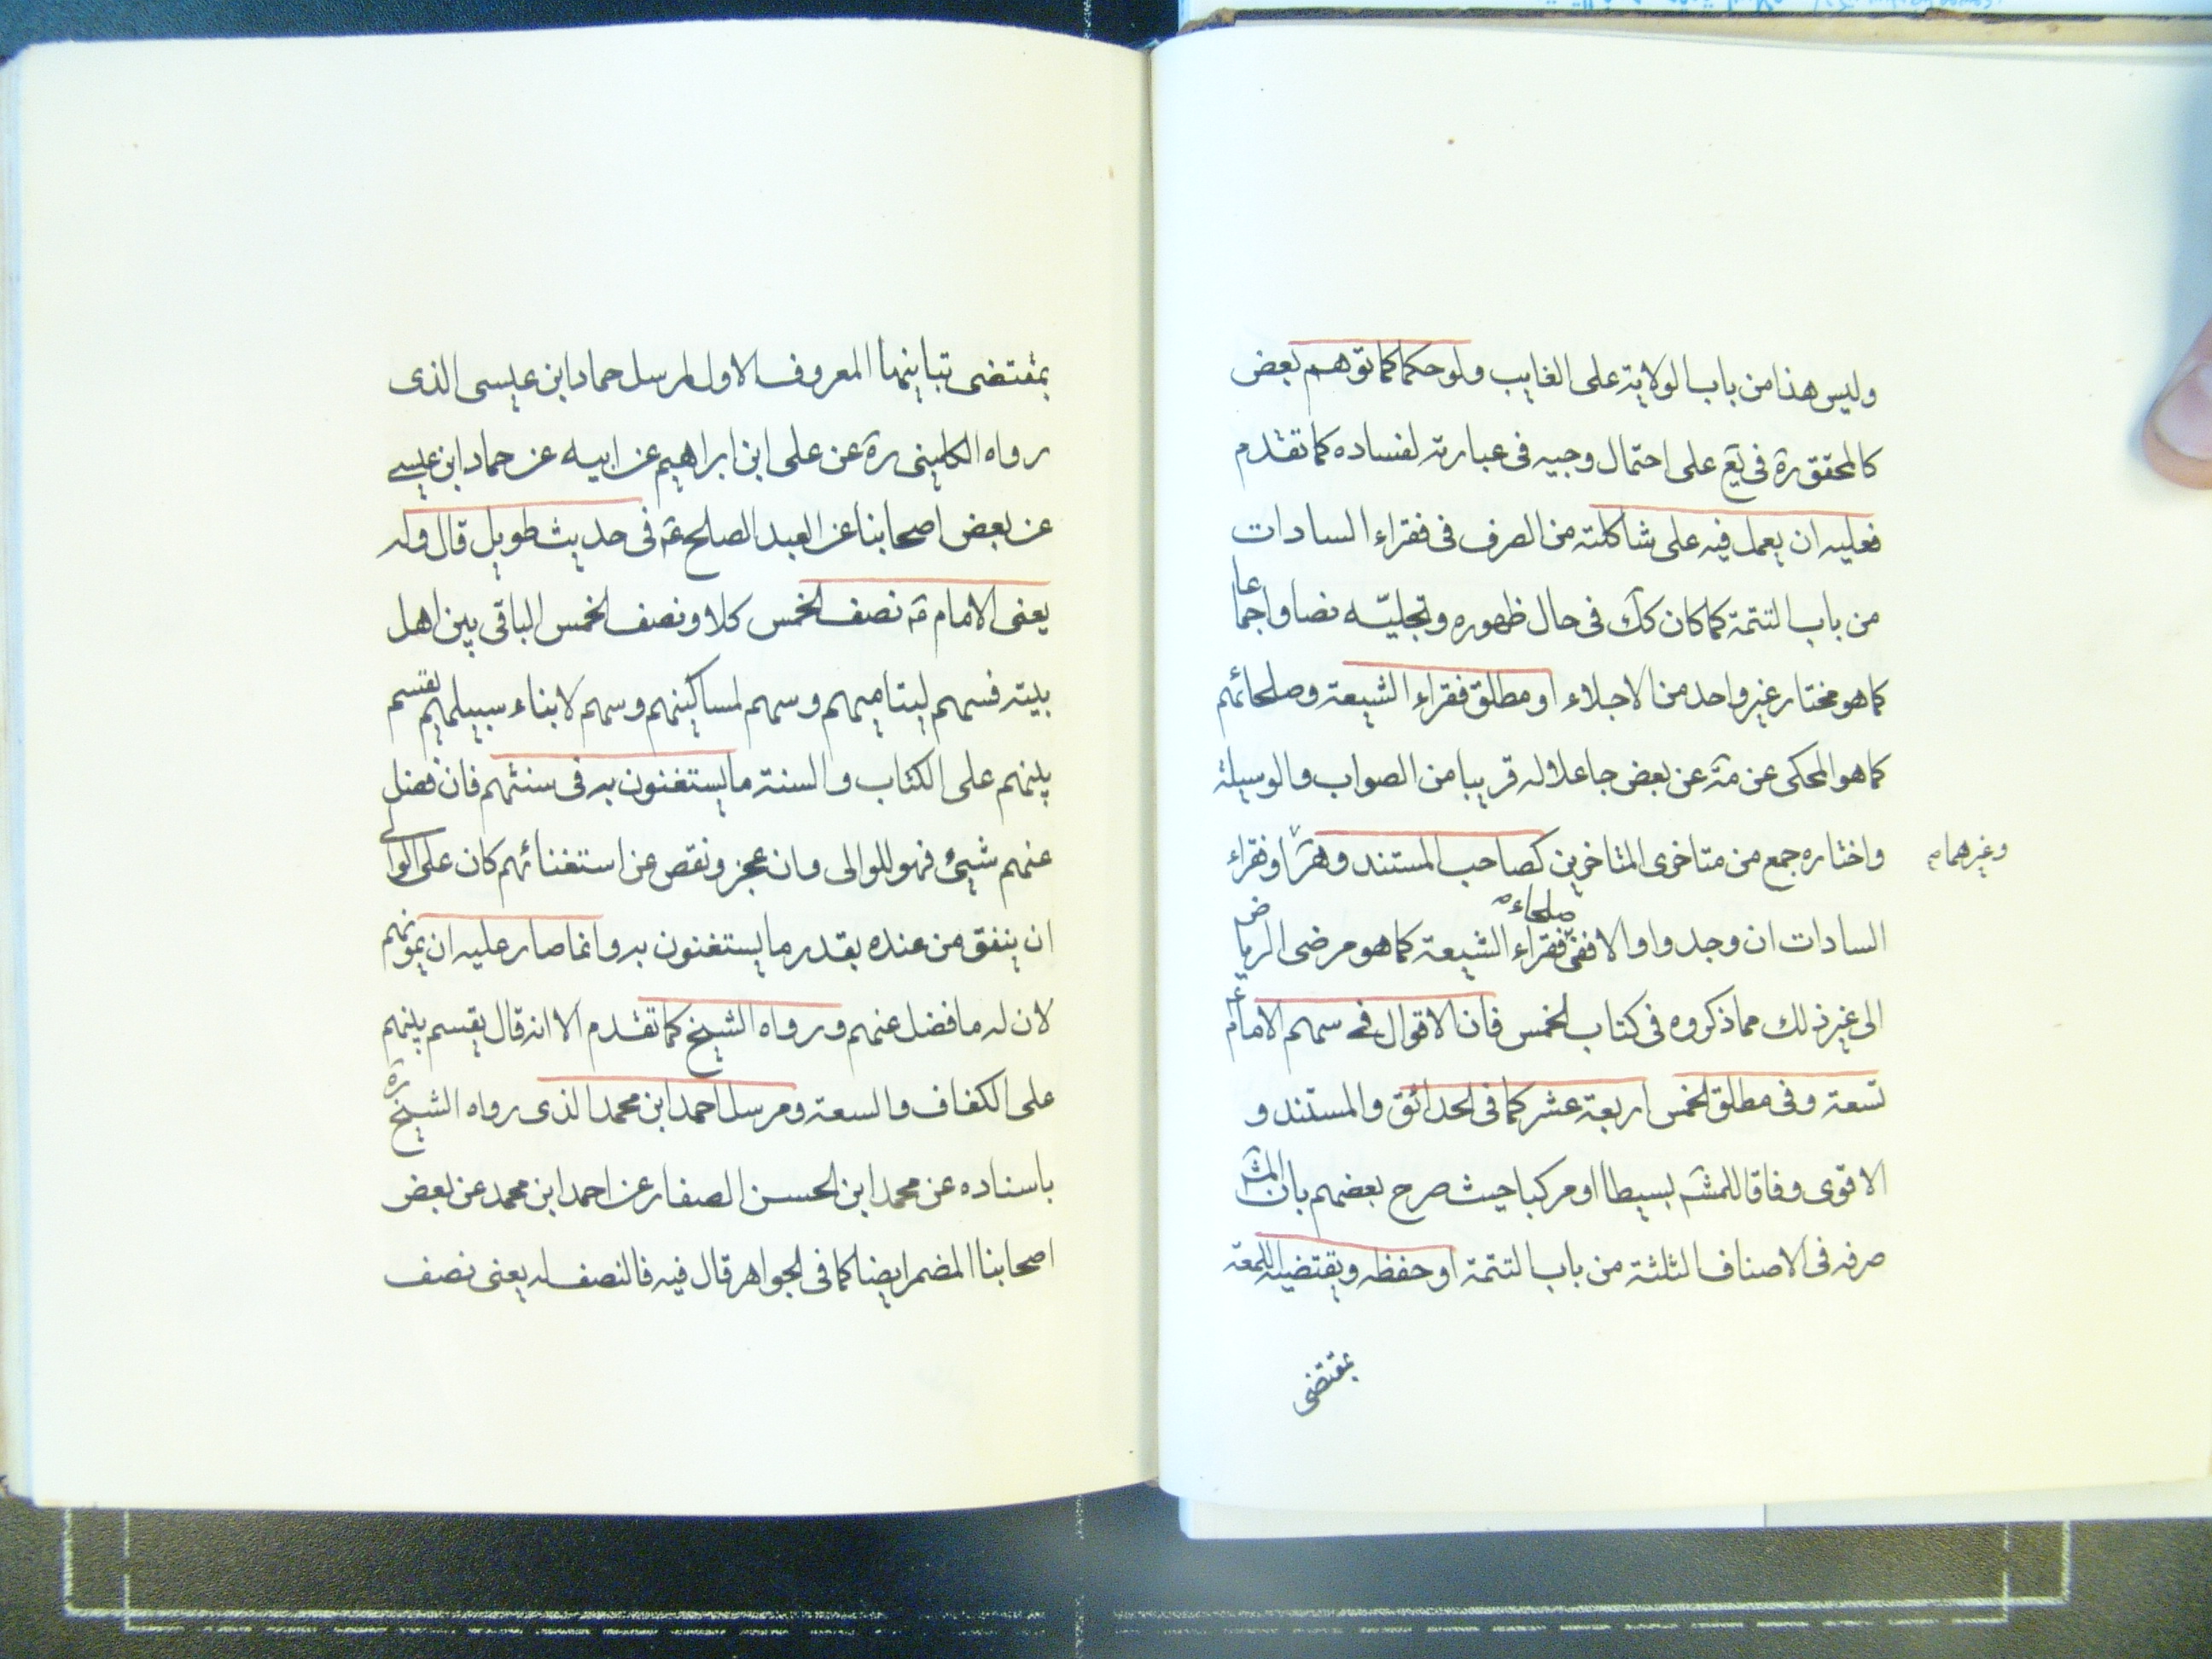 وليس هذا من باب الولاية على الغايب ولو حكما كما توهم بعض
كالمحقق ره في يع على احتمال وجيه في عبارته لفساده كما تقدم
فعليه ان يعمل فيه على شاكلته من الصرف في فقراء السادات
من باب التتمة كما كان كك في حال ظهوره وتجليه نصا واجماعا
كما هو مختار غير واحد من الاجلاء او مطلق فقراء الشيعة وصلحائهم
كما هو المحكى عن مة عن بعض جاعلا له قريبا من الصواب والوسيلة
وغيرهما م
واختاره جمع من متاخرى المتاخرين كصاحب المستند او فقراء
صلحاء
السادات ان وجدوا والا ففى فقراء الشيعة كما هو مرضى الرياض
الى غير ذلك مما ذكروه في كتاب الخمس فان الاقوال في سهم الامام ع
تسعة وفى مطلق الخمس اربعة عشر كما في الحدائق والمستند و
الاقوى وفاقا للمشـ بسيطا او مركبا حيث صرح بعضهم بان المشـ
صرفه في الاصناف الثلثة من باب التتمة او حفظه ويقتضيه اللمعة
بمقتضى
بمقتضى تباينهما المعروف الاول لمرسل حماد ابن عيسى الذى
رواه الكلينى ره عن على ابن ابراهيم عن ابيه عن حماد ابن عيسى
عن بعض اصحابنا عن العبد الصالح ع في حديث طويل قال وله
يعنى الامام ع نصف الخمس كلا ونصف الخمس الباقى بين اهل
بيته فسهم ليتاميهم وسهم لمساكينهم وسهم لابناء سبيلهم يقسم
بينهم على الكتاب والسنة ما يستغنون به في سنتهم فان فضل
عنهم شيئ فهو للوالى وان عجز ونقص عن استغنائهم كان على الوالى
ان ينفق من عنده بقدر ما يستغنون به وانما صار عليه ان يمونهم
لان له ما فضل عنهم ورواه الشيخ كما تقدم الا انه قال يقسم بينهم
على الكفاف والسعة ومرسل احمد ابن محمد الذى رواه الشيخ ره
باسناده عن محمد ابن الحسن الصفار عن احمد ابن محمد عن بعض
اصحابنا المضمر ايضا كما في الجواهر قال فيه فالنصف له يعنى نصف